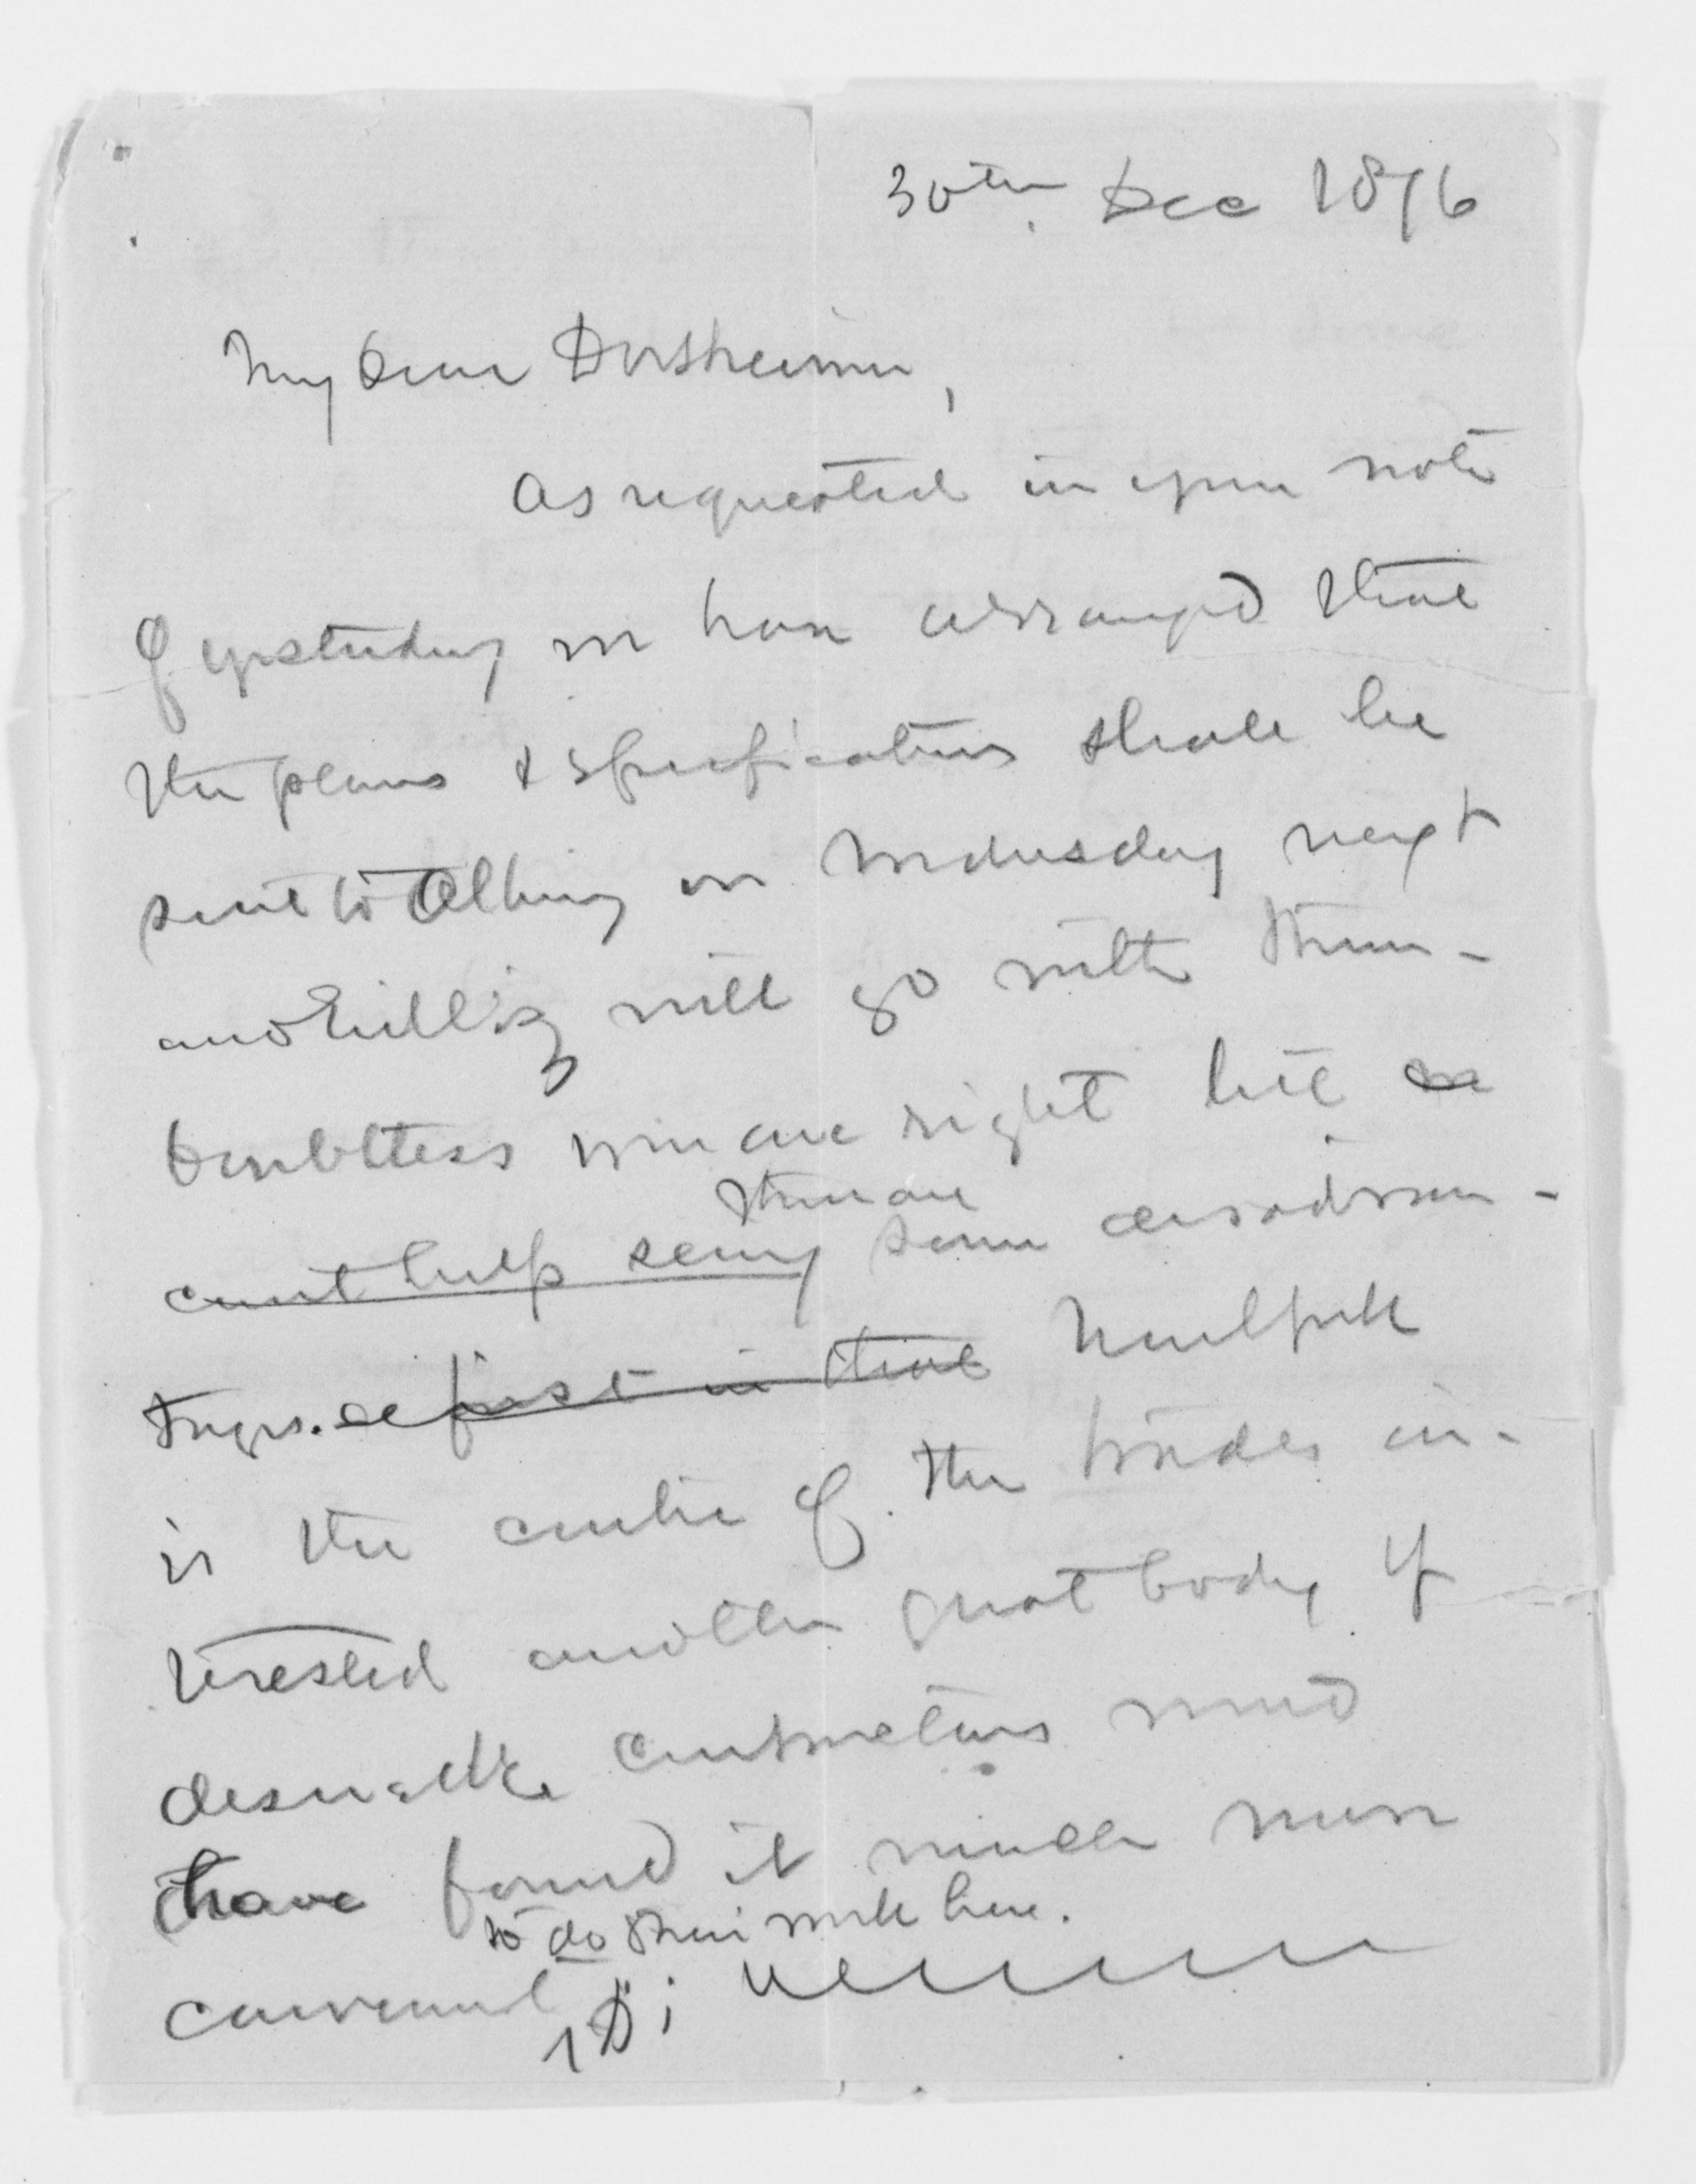 30th. Dec 1876
My Dear Dorsheimer,
As requested in your note
of yesterday we have arranged that
the plans & specifications shall be
sent to Albany on Wednesday next
and Eidlitz will go with them -
Doubtless you are right but we
there are
can't help seeing some disadvan-
tages. at first in that New York
is the centre of the trades in-
terested another great body of
desirable contractors would
have found it much more
to do their work here.
convenient